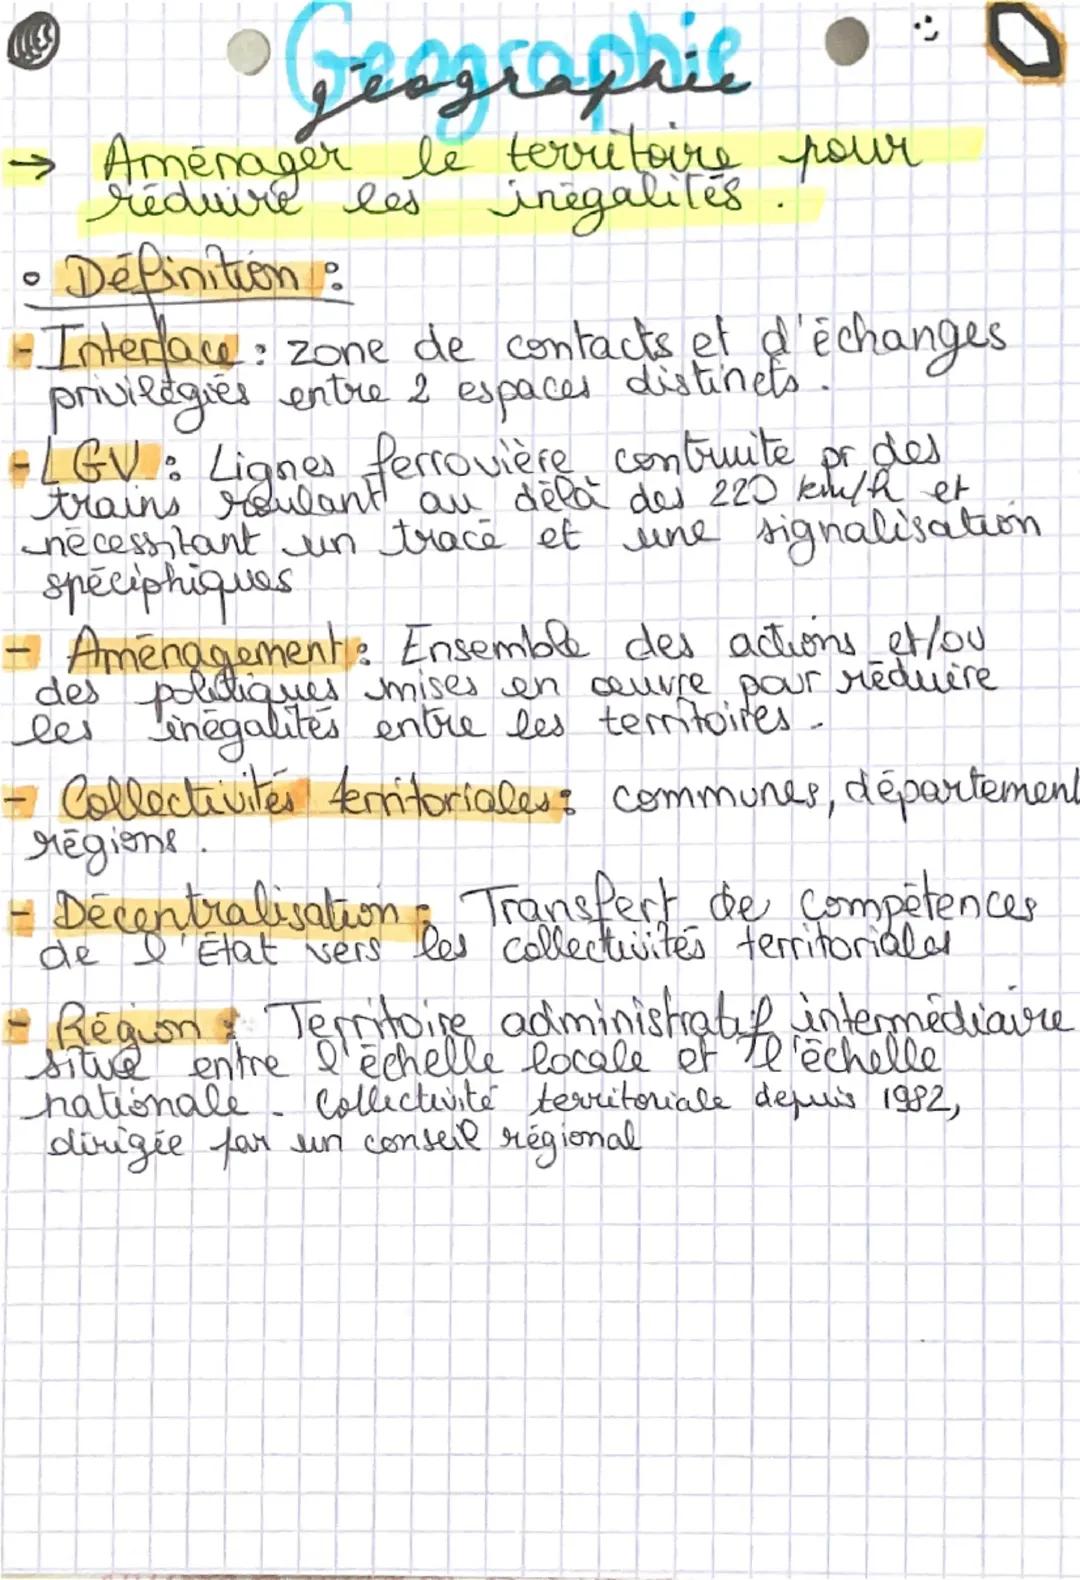 Geographie
géographie
→ Aménager le territoire pour
réduire les inégalités.
• Définition :
- Interface : zone de contacts et d'échanges
privilégiés entre 2 espaces distincts.
- LGV : Lignes ferrovière contruite pr des
trains roulant au délà des 220 km/h et
nécessitant un tracé et une signalisation
spéciphiques
- Aménagement : Ensemble des actions et/ou
des politiques mises en œuvre pour réduire
les inégalités entre les territoires.
- Collectivités territoriales : communes, département
régions.
- Décentralisation : Transfert de compétences
de l'État vers les collectivités territoriales
- Région : Territoire administratif intermédiaire
situé entre l'échelle locale et l'échelle
nationale. Collectivité territoriale depuis 1982,
dirigée par un conseil régional